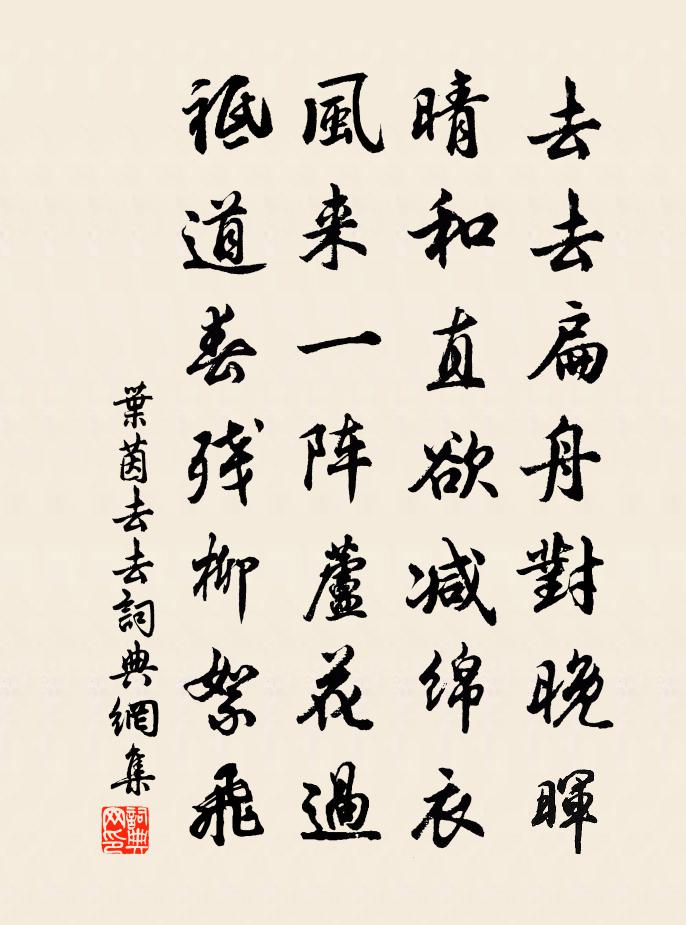 去去扁舟對晚暉
晴和直欲減綿衣
風来一阵蘆花過
祗道春残柳絮飛
葉茵去去詞典網集
詞典网印